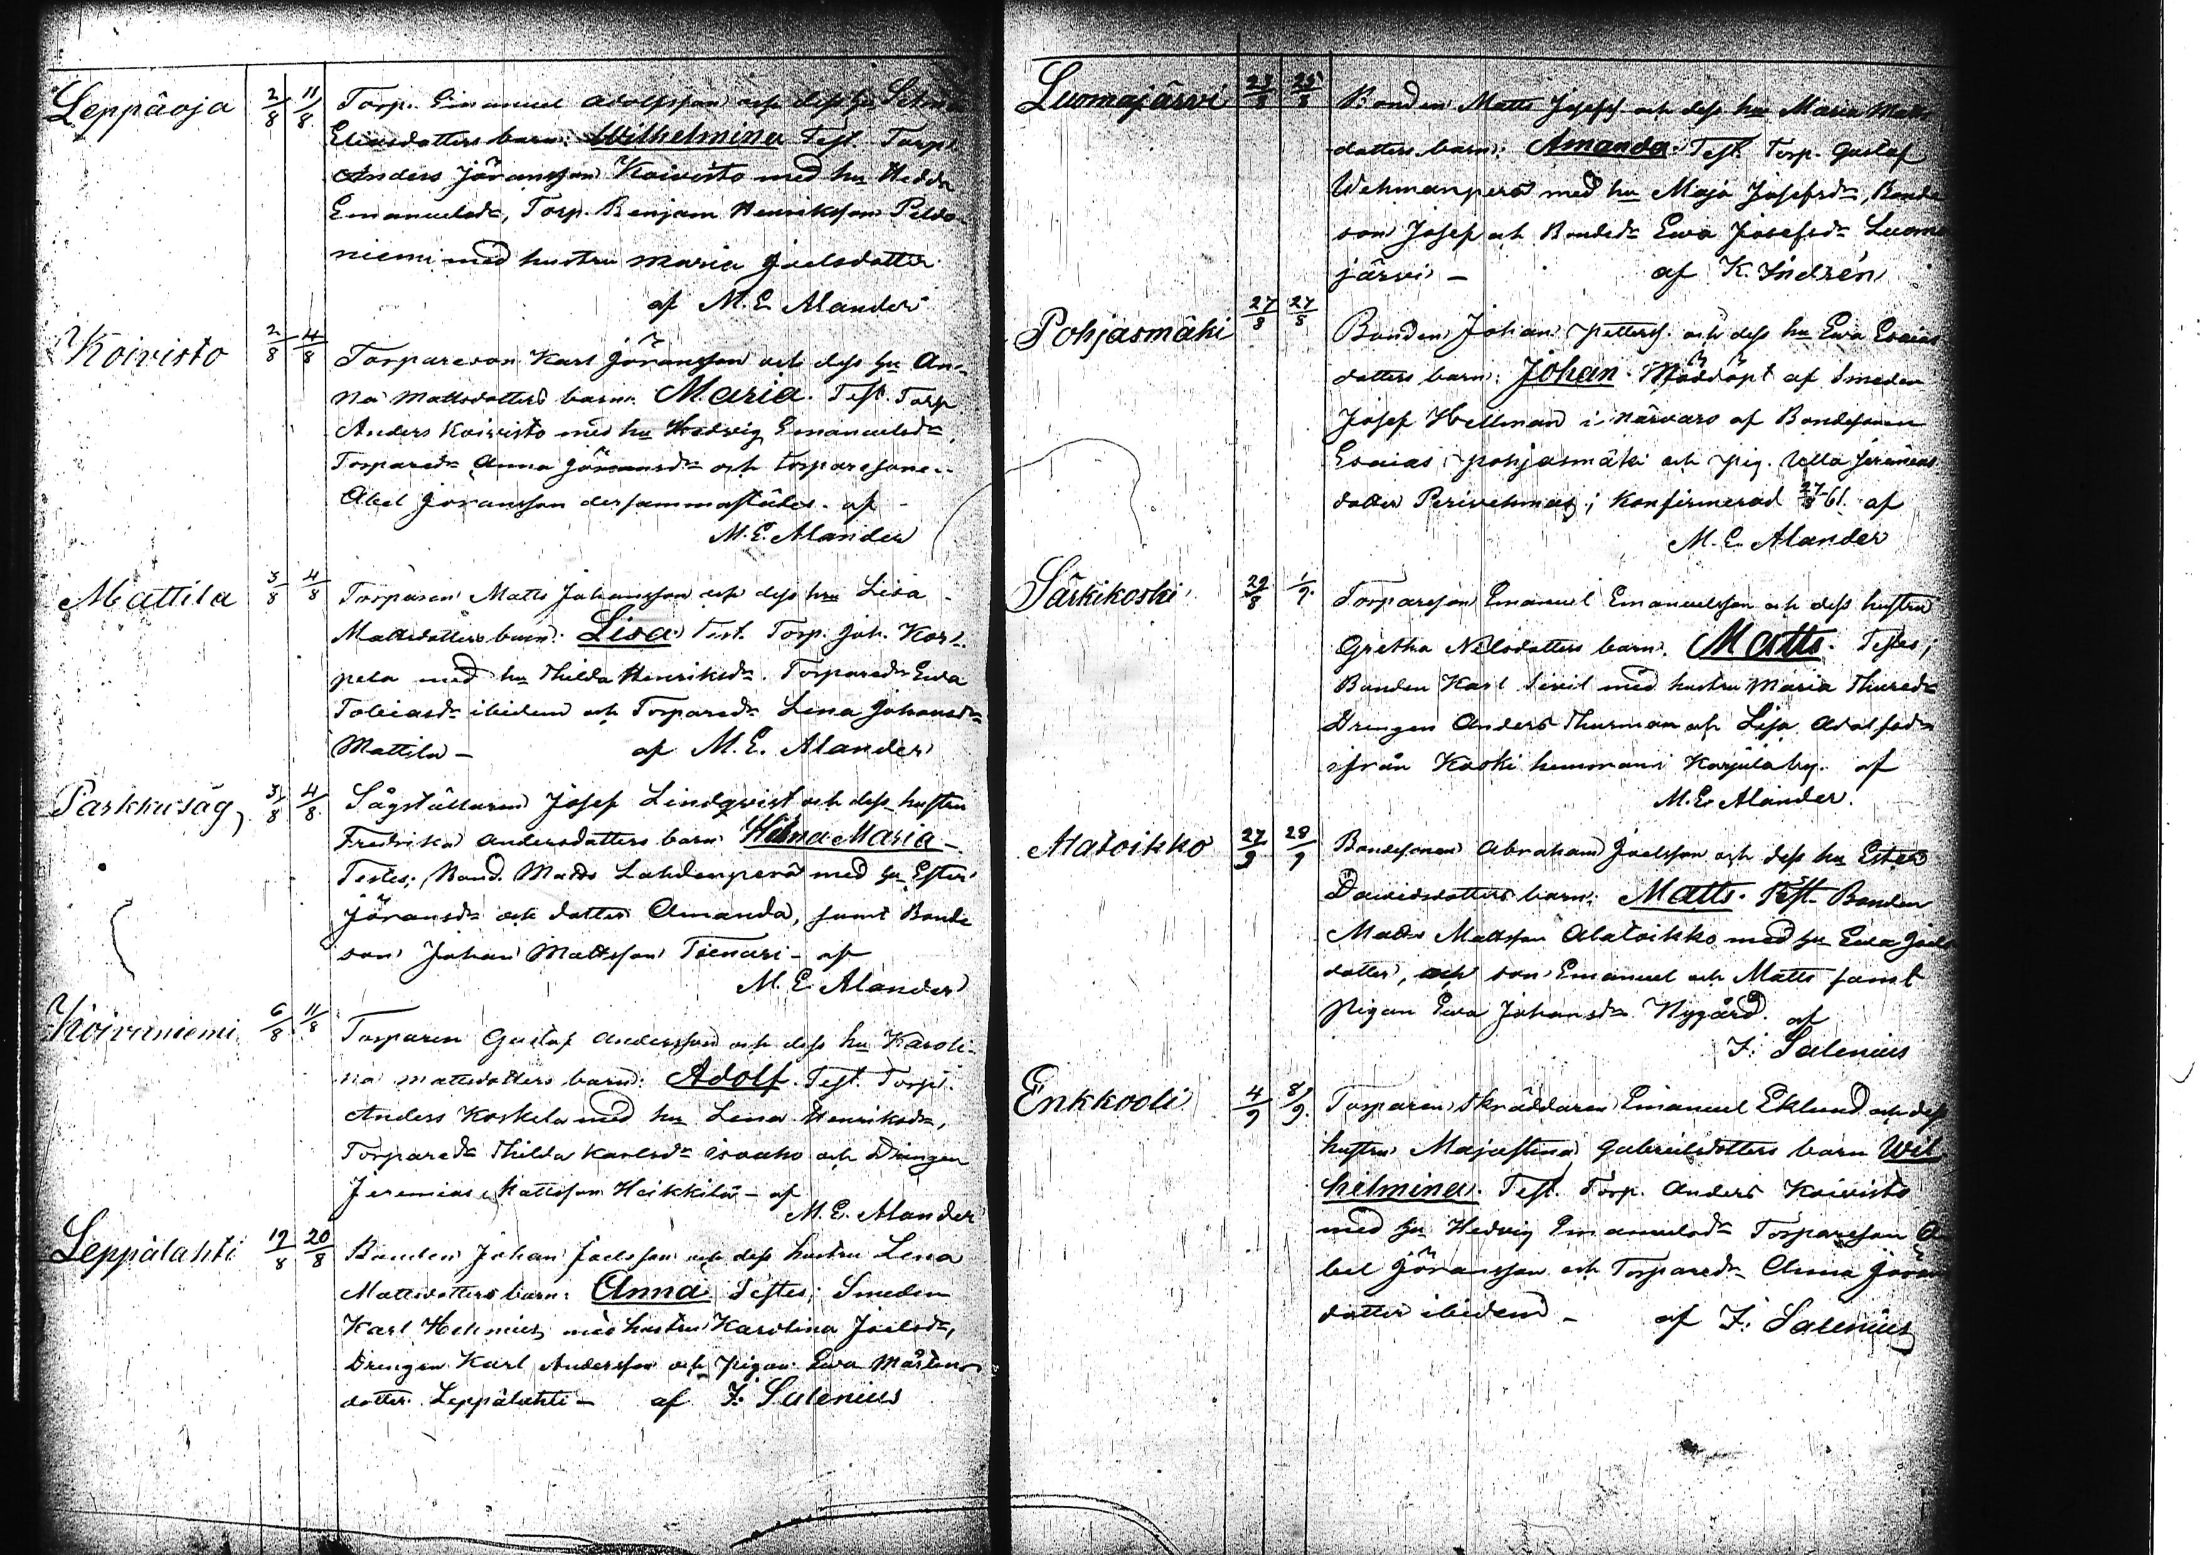 Leppäoja 2/8 11/8 Torp. Emanuel Adolfsson och dess hu Selma
Eliasdotters barn: Wilhelmina Test. Torp.
Anders Jöransson Koivisto med hu Hedda
Emanuelsdr, Torp. Benjam Henriksson Peldo-
niemi med hustru Maria Joelsdotter
af M. E. Alander
Koivisto 2/8 4/8 Torpareson Karl Jöransson och dess hu An-
na Mattsdotters barn. Maria. Test. Torp
Anders Koivisto med hu Hedvig Emanuelsdr,
Torparedr Anna Göransdr och torparesone..
Abel Joransson dersammastädes. af
M. E. Alander
Mattila 3/8 4/8 Torparen Matts Johansson och dess hru Lisa
Mattsdotters barn. Lisa. Test. Torp. Joh. Kor-
pela med hu Thilda Henriksdr. Torparedr Ewa
Tobiasdr ibidem och Torparedr Lena Johansdr
Mattila - af M. E. Alander
Parkkusåg, 3/8 4/8 Sågställaren Josef Lindqvist och dess hustru
Fredrika Andersdotters barn Hilma Maria -
Testes; Bond. Matts Lahdenperä med hu Ester
Jöransdr och dotter Amanda, samt Bonde
son Johan Mattsson Tienari - af
M. E. Alander
Koivuniemi 6/8 11/8 Torparen Gustaf Andersson och dess hu Karoli-
na Mattsdotters barn. Adolf. Test. Torp.
Anders Koskela med hu Lena Henriksdr,
Torparedr Thilda Karlsdr Isoaho och Drängen
Jeremias Mattsson Heikkilä - af
M. E. Alander
Leppälahti 19/8 20/8 Bonden Johan Joelsson och dess hustru Lena
Mattsdotters barn: Anna. Testes; Smeden
Karl Helenius med hustru Karolina Joelsdr,
Drengen Karl Andersson och pigan Ewa Mårtens
dotter Leppälahti - af F. Salenius
Luomajärvi 23/8 25/8 Bonden Matts Josefs. och dess hu Maria Matts
dotters barn: Amanda. Test. Torp. Gustaf
Wehmanperä med hu Maja Josefsdr, Bonde
son Josef och Bondedr Ewa Josefsdr Luoma
järvi - af K. Indrén
Pohjasmäki 27/8 27/8 Bonden Johan Petterss. och dess hu Ewa Esaias
dotters barn: Johan. Nöddöpt af Smeden
Josef Hellman i närvaro af Bondesonen
Esaias Pohjasmäki och pig. Ulla Jeremias
dotter Perivehmas; Konfirmerad 27/8 61. af
M. E. Alander
Särkikoski 29/8 1/9. Torpareson Emanuel Emanuelsson och dess hustru
Gretha Nilsdotters barn. Matts. Testes;
Bonden Karl Sivil med hustru Maria Thuredr
Drengen Anders Thurman och Lisa Adolfsdr
ifrån Koski hemman i Karjala by. af
M. E. Alander.
Alatoikko 27/9 29/9 Bondesonen Abraham Joelsson och dess hu Ester
Davidsdotters barn: Matts. Test. Bonden
Matts Mattsson Alatoikko med hu Ewa Joels
dotter, och son Emanuel och Matts samt
Pigan Ewa Johansdr Nygård. af
F. Salenius
Enkkooli 4/9 8/9. Torparen, skräddaren Emanuel Eklund och dess
hustru Majastina Gabrielsdotters barn Wil
helmina. Test. Torp. Anders Koivisto
med hu Hedvig Emanuelsdr Torpareson A
bel Jöransson och Torparedr Anna Jöran
dotter ibidem - af F. Salenius